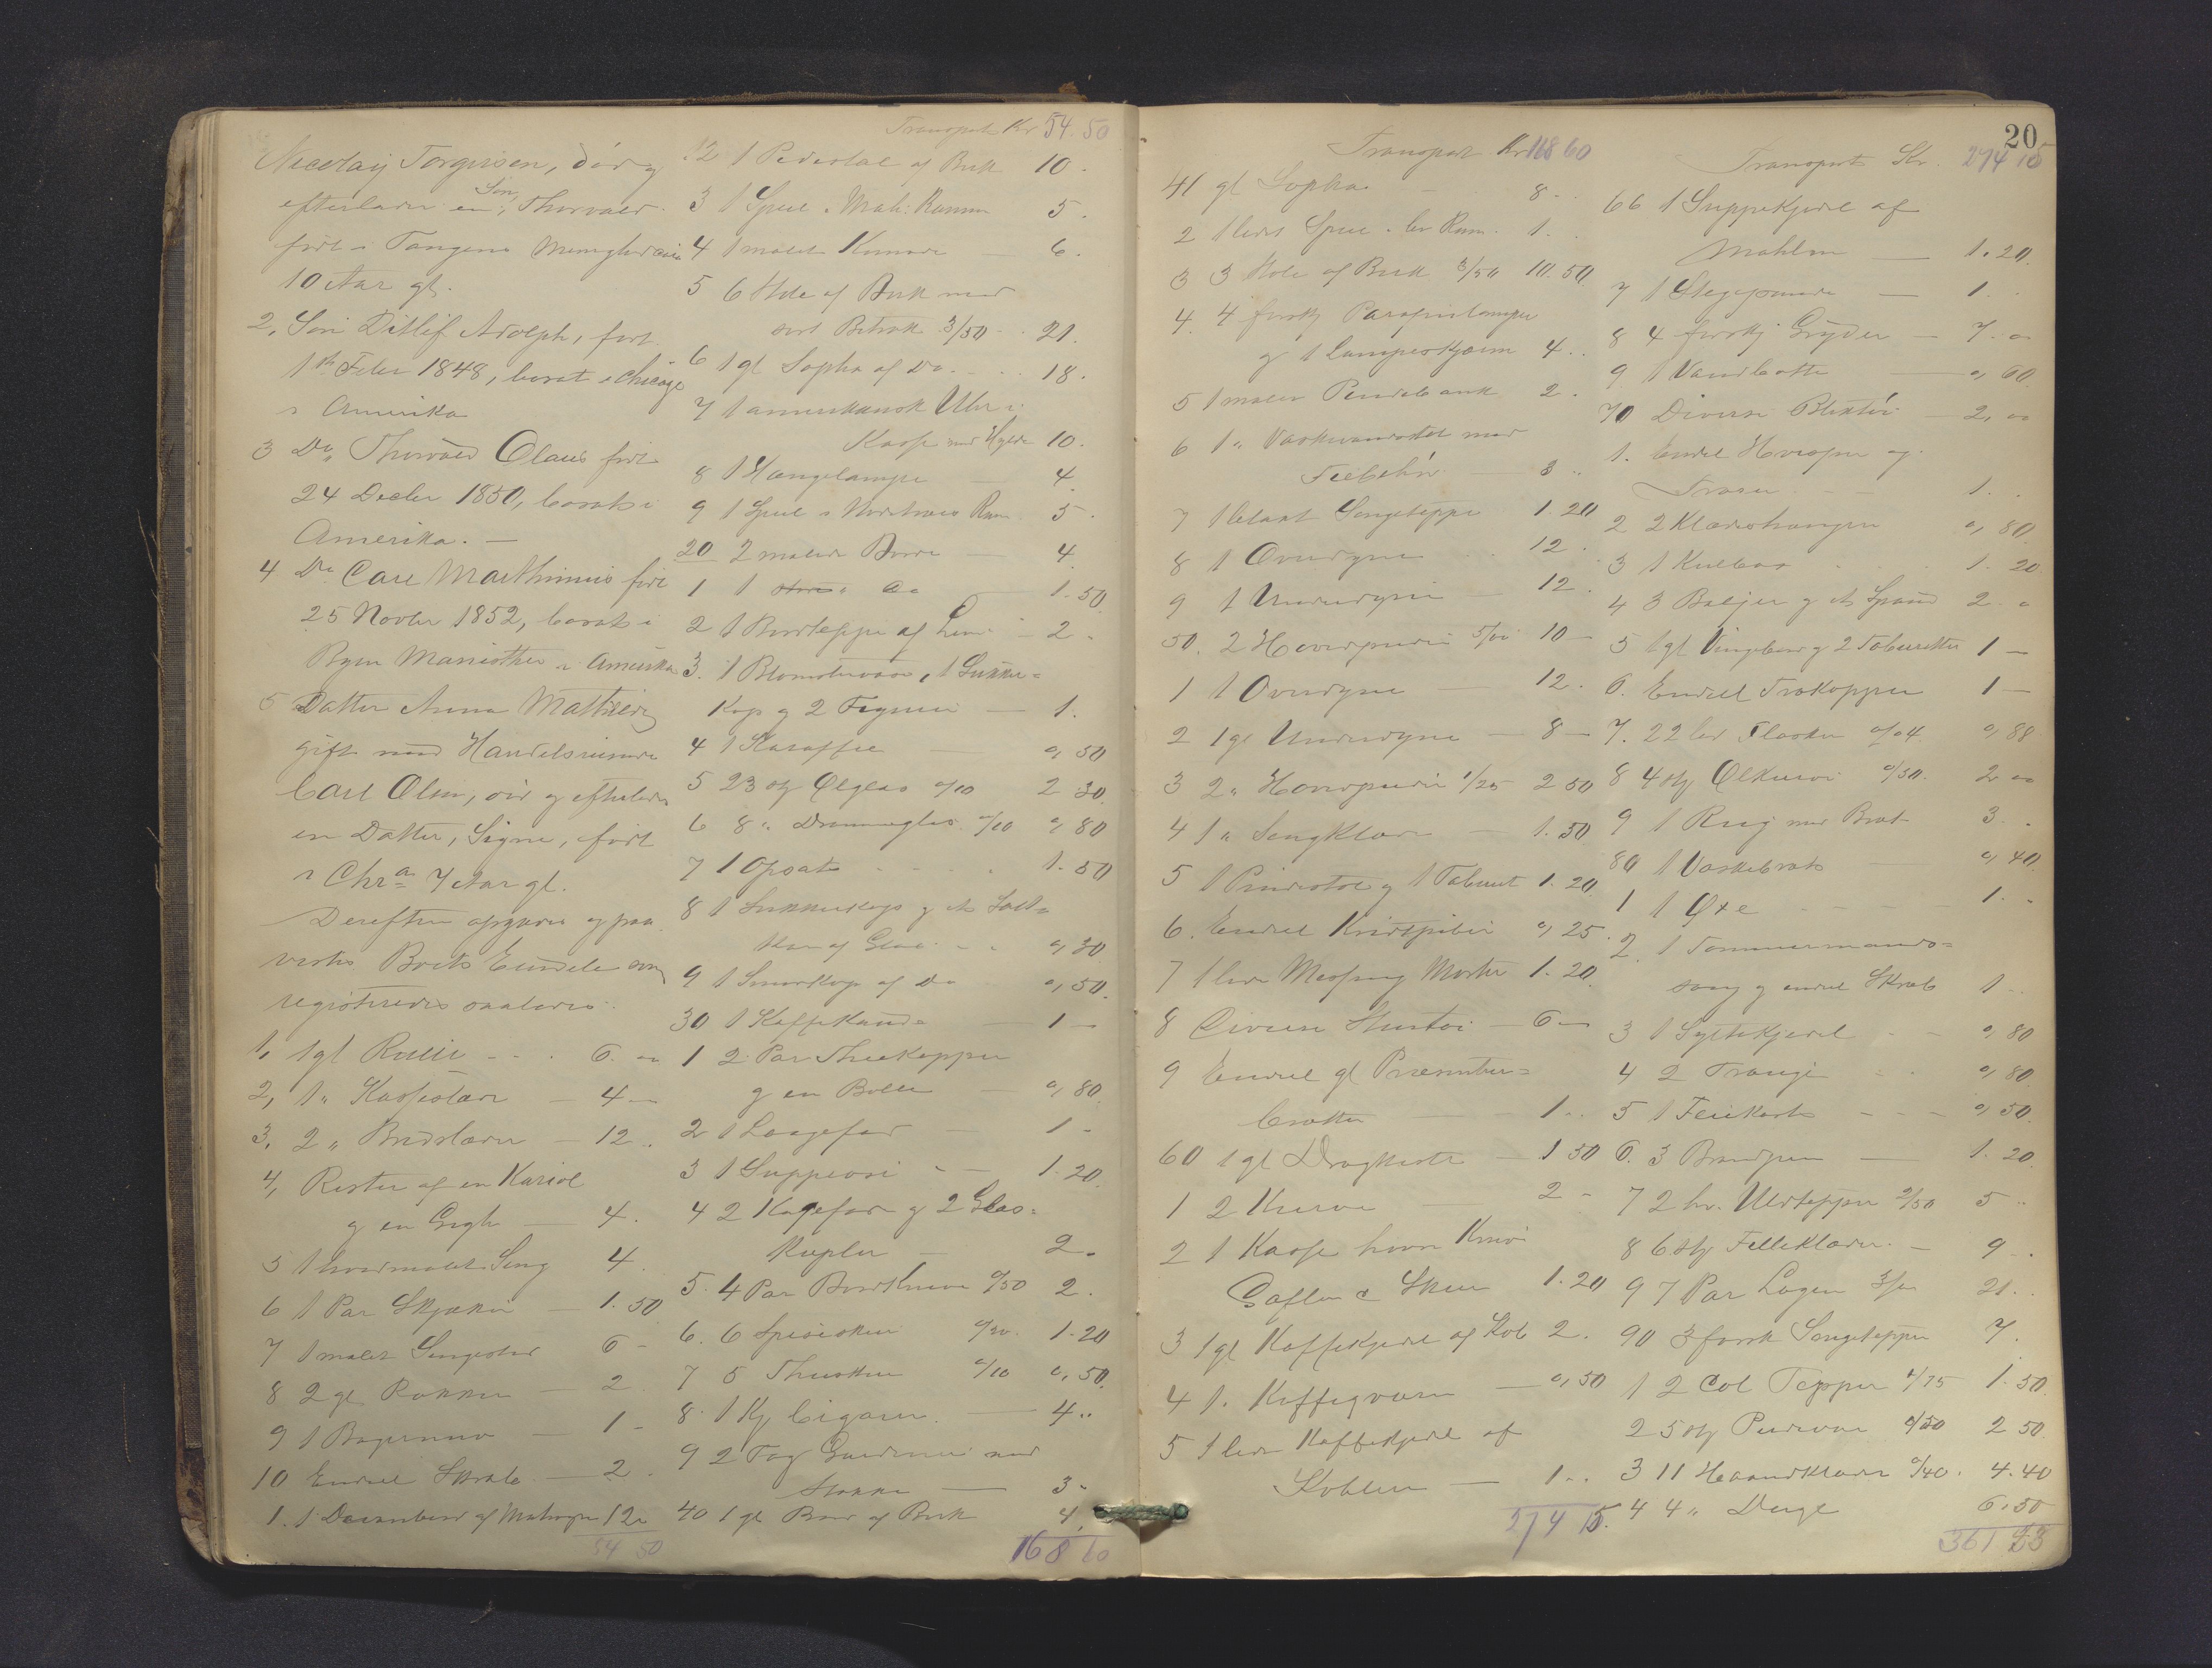 Nicolay Torgersen, död og
efterlader en Søn, Thorvald
født i Tangens Menighed ca
10 Aar gl.
2, Søn Ditlef Adolph, født
1ste Feber 1848, bosat i Chicago
i Amerika
3 Do Thorvald Olaus født
24 Decbr 1850, bosat i
Amerika. —
4 Do Carl Marthinius født
25 Novbr 1852, bosat i
Byen i Amerika
5 Datter Anna Mathilde
gift med Handelsreisende
Carl Olsen, död og efterlader
en Datter, Signe, født
i Chra 7 Aar gl.
Derefter opgaves og paa
vistes Boets Eiendele som
registreredes saaledes:
1, 1 gl Rulle - - . 6. "
2, 1 " — 4 —
3, 2 " — 12 ..
4, Rester af en Kariol
og en Gigh — 4.
5 1 hvidmalet Seng 4.
6 1 Par Skjækler — 1. 50
7 1 malet Sengested 6 -
8 2 gl Rokker — 2.
9 1 — 1 -
10 Endel Skrab — 2.
1. 1 af Mahogni 12 "
54 50
Transport Kr 54. 50
12 1 Pidestal af Birk 10.
3 1 Speil i Mah: Ramme 5.
4 1 malet Kumode — 6.
5 6 Stole af Birk med
sort Betræk 3/50 .. 21.
6 1 gl Sopha af Do. - .. 18.
7 1 amerikansk Uhr i
Kasse med Hylde 10.
8 1 Hængelampe — 4.
9 1 Speil i Ram 5.
20 2 malede Borde — 4.
1 1 " do — 1. 50
2 1 Bordteppe af — 2 -
3. 1 Blomstervase, 1 Sukker=
Kop og 2 Figurer — 1.
4 1 Karaffel — 0, 50
5 23 stkj Ølglas 0/10 2 30.
6 8 " Drammeglas 0/10 0, 80
7 1 Opsats - - - . 1. 50
8 1 Sukkerkop og et Salt=
kar af Glas. - - 0, 30
9 1 Smørkop af Do 0, 50.
30 1 Kaffekande — 1 —
1 2 Par Theekopper
og en Bolle — 0, 80.
2 1 Laagefad — 1 -
3 1 Suppeøse - — 1. 20.
4 2 Kagefad og 2 Glas=
Kupler — 2.
5. 4 Par Bordknive 0/50 2.
6. 6 Spiseskeer 0/20. 1. 20
7 5 Theskeer 0/10 0, 50.
8. 1 Kj Cigarer. — 4..
9 2 Fag Gardiner med
Stokke — 3 -
40 1 gl Bord af Birk 4.
168 60
20
Transport Kr 168 60
41 gl Sopha — 8 ..
2 1 lidet Speil i br Ram. 1.
3 3 Stole af Birk 3/50 10. 50
4. 4 forskj Parafinlamper
og 1 Lampeskjærm 4..
5 1 malet Pindebænk 2.
6 1 " med
Tilbehør 3 ..
7 1 Sengeteppe 1. 20
8 1 Overdyne . . 12.
9 1 Underdyne — 12.
50. 2 Hovedpuder 5/00 10 —
1 1 Overdyne — 12.
2 1 gl Underdyne — 8 —
3 2 " Hovedpuder 1/25 2 50
4 1 " Sengklæde — 1. 50
5 1 Pindestol og 1 Taburet 1. 20
6. Endel Kridtpiber 0, 25.
7 1 liden Messing Morter 1. 20.
8 Diverse Stentøi — 6 —
9 Endel gl Præsenter=
brætter — 1..
60 1 gl Dragkiste — 1 50
1 2 Kurve — 2 -
2 1 Kasse hvori Knive
Gafler & Skeer 1. 20
3 1 gl Kaffekjedel af Kob 2.
4 1. Kaffeqværn — 0, 50
5 1 liden Kaffekjedel af
Kobber — 1..
274 15.
Transport Kr. 274 15
66 1 Suppekjedel af
— 1. 20.
7 1 Stegepande — 1.
8 4 forskj Gryder — 7. "
9. 1 Vandbøtte — 0, 60.
70 Diverse Bliktøi — 2, "
1. Endel og
- - 1.
2 2 Klædesstænger 0, 80.
3 1 Kulbox . 1. 20
4 3 Baljer og et Spand 2. "
5 1 gl og 2 Taburetter 1 —
6. Endel Trækopper 1 —
7. 22 hl Flasker 0/04 0, 88
8 4 stkj Ølkurve 0/50. 2 "
9 1 med Bræt 3.
80 1 Vaskebræt — 0, 40
1 1 Øxe - - - - 1. -
2 1 Tømmermands=
saug og endel Skrab 1 ..
3 1 Syltekjedel - - 0, 80
4 2 - - 0, 80
5 1 Feiekost - - - 0, 50.
6. 3 — 1. 20
7 2 hv. Uldtepper 2/50 5 ..
8 6 stkj — 9 -
9 7 Par Lagen 3/00 21..
90 3 forsk Sengetepper 7.
1 2 Col Tepper 0/75 1. 50
2 5 stkj Pudevar 0/50 2 50.
3 11 Haandklæder 0/40. 4. 40
4 4 " Duge 6, 50
361 23